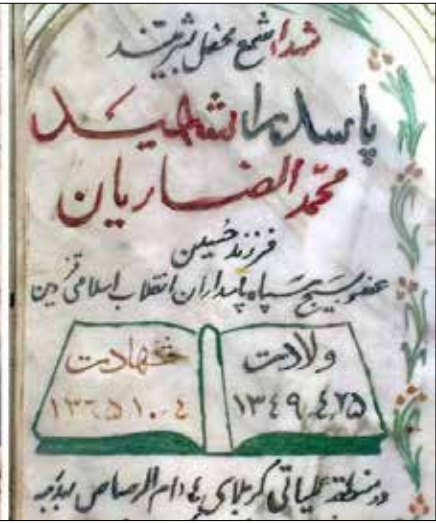 شهدا شمع محفل بشریتند
پاسدار شهید
محمد انصاریان
فرزند حسین
عضو بسیج سپاه پاسداران انقلاب اسلامی قزوین
ولادت شهادت
۱۳۴۹٫۴٫۲۵ ۱۳۶۵٫۱۰٫۴
در منطقه عملیاتی کربلای ۴ دام الرصاص بدرجه